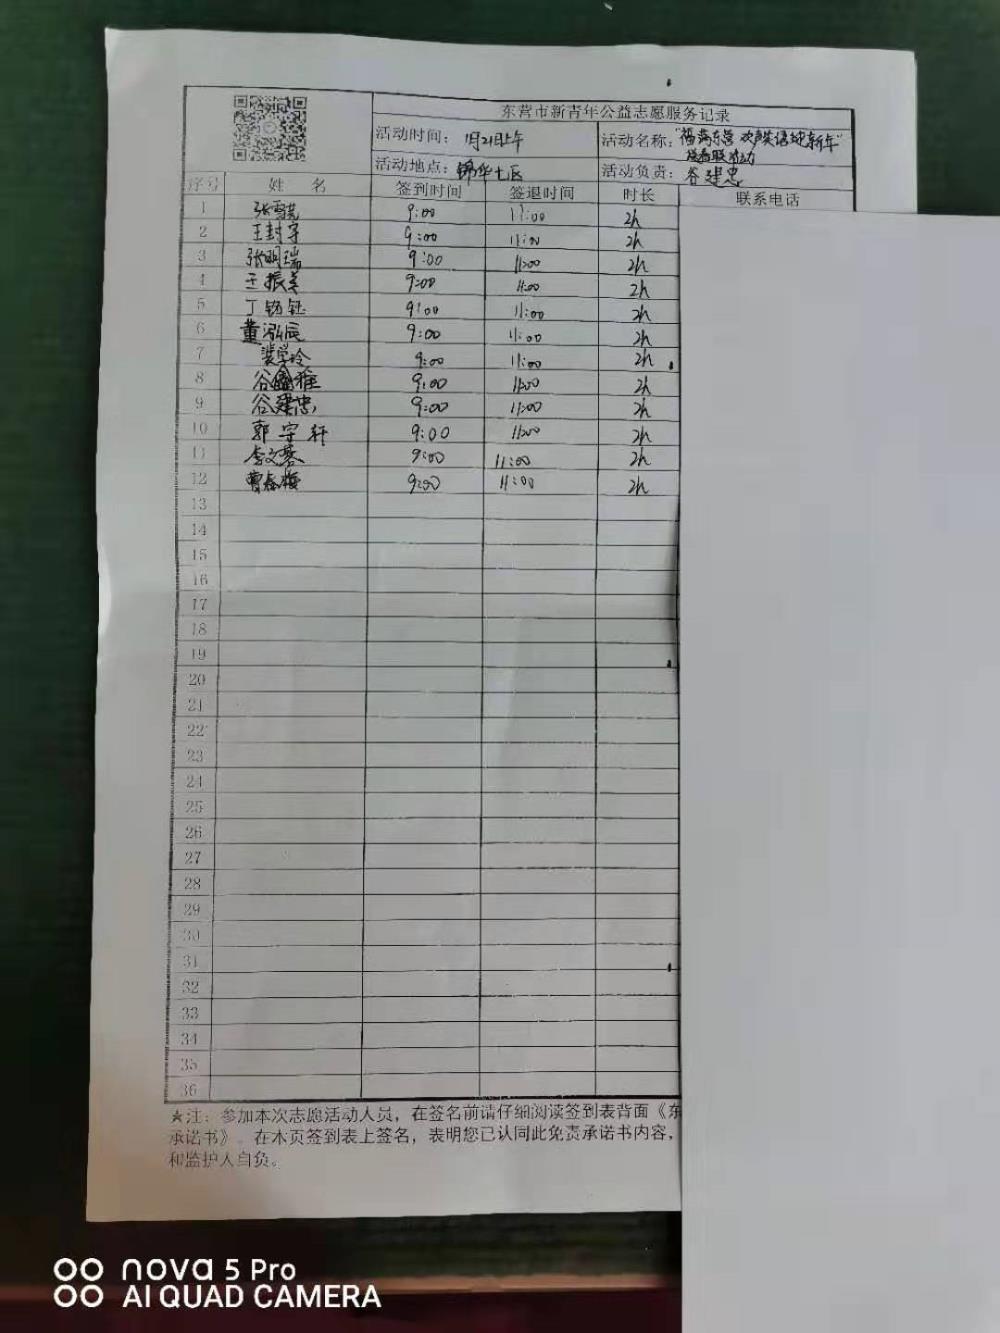 东营市新青年公益志愿服务记录
活动时间：1月21日上午 活动名称："福满东营 欢声笑语迎新年"
送春联活动
活动地点：锦华七区 活动负责：谷建忠
序号 姓 名 签到时间 签退时间 时长 联系电话
1 9:00 11:00 2h
2 王封宇 9:00 11:00 2h
3 张明瑞 9:00 11:00 2h
4 王振美 9:00 11:00 2h
5 9:00 11:00 2h
6 董泓辰 9:00 11:00 2h
7 9:00 11:00 2h
8 谷鑫雅 9:00 11:00 2h
9 谷建忠 9:00 11:00 2h
10 郭宇轩 9:00 11:00 2h
11 9:00 11:00 2h
12 9:00 11:00 2h
13
14
15
16
17
18
19
20
21
22
23
24
25
26
27
28
29
30
31
32
33
34
35
36
★注：参加本次志愿活动人员，在签名前请仔细阅读签到表背面《东
承诺书》。在本页签到表上签名，表明您已认同此免责承诺书内容，
和监护人自负。
nova 5 Pro
AI QUAD CAMERA